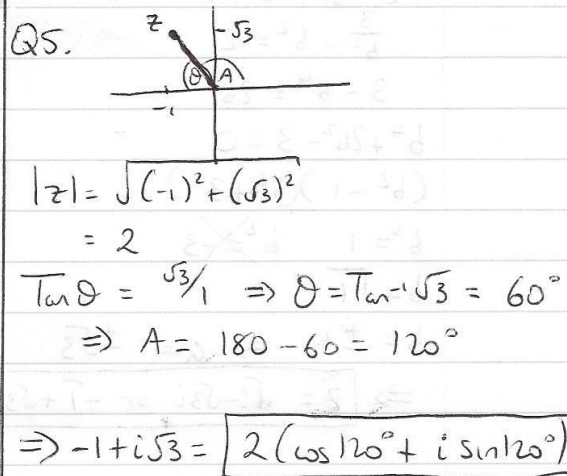 Q5.
z
√3
θ A
-1
|z| = √(-1)² + (√3)²
= 2
Tan θ = √3/1 ⇒ θ = Tan⁻¹ √3 = 60°
⇒ A = 180 - 60 = 120°
⇒ -1 + i√3 = 2(cos 120° + i sin 120°)